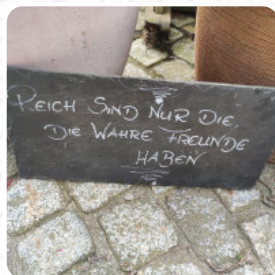 REICH SIND NUR DIE,
DIE WAHRE FREUNDE
HABEN